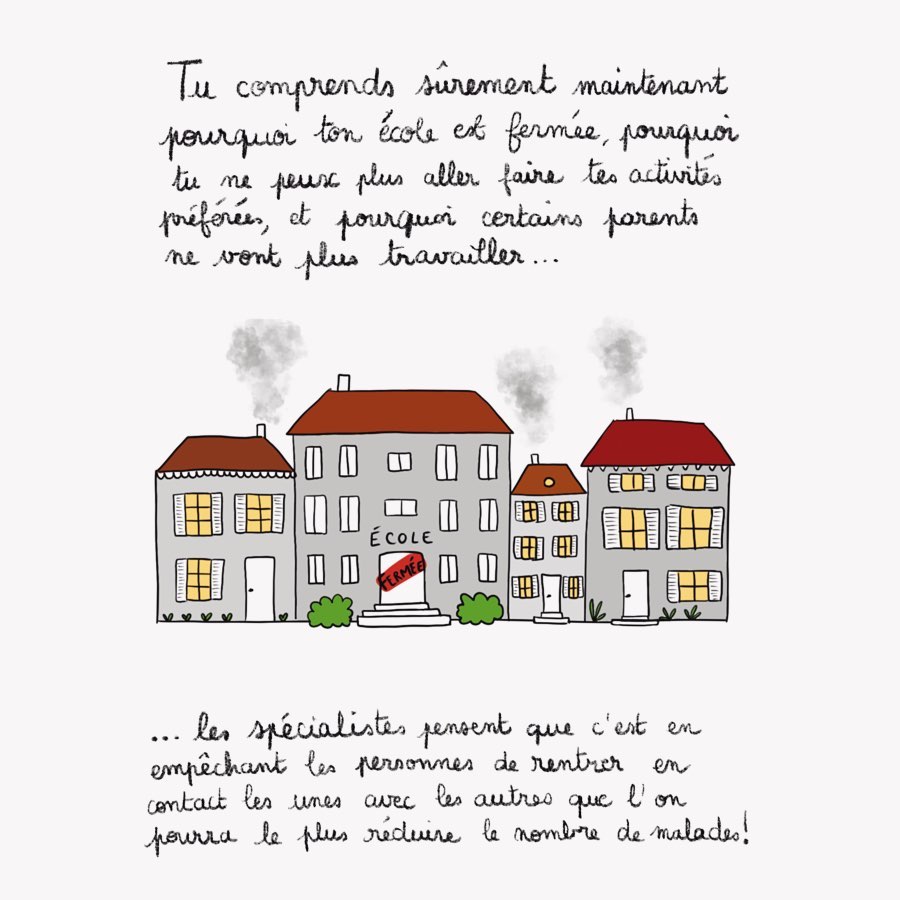 Tu comprends sûrement maintenant
pourquoi ton école est fermée, pourquoi
tu ne peux plus aller faire tes activités
préférées, et pourquoi certains parents
ne vont plus travailler...
ÉCOLE
FERMÉE
... les spécialistes pensent que c'est en
empêchant les personnes de rentrer en
contact les unes avec les autres que l'on
pourra le plus réduire le nombre de malades!